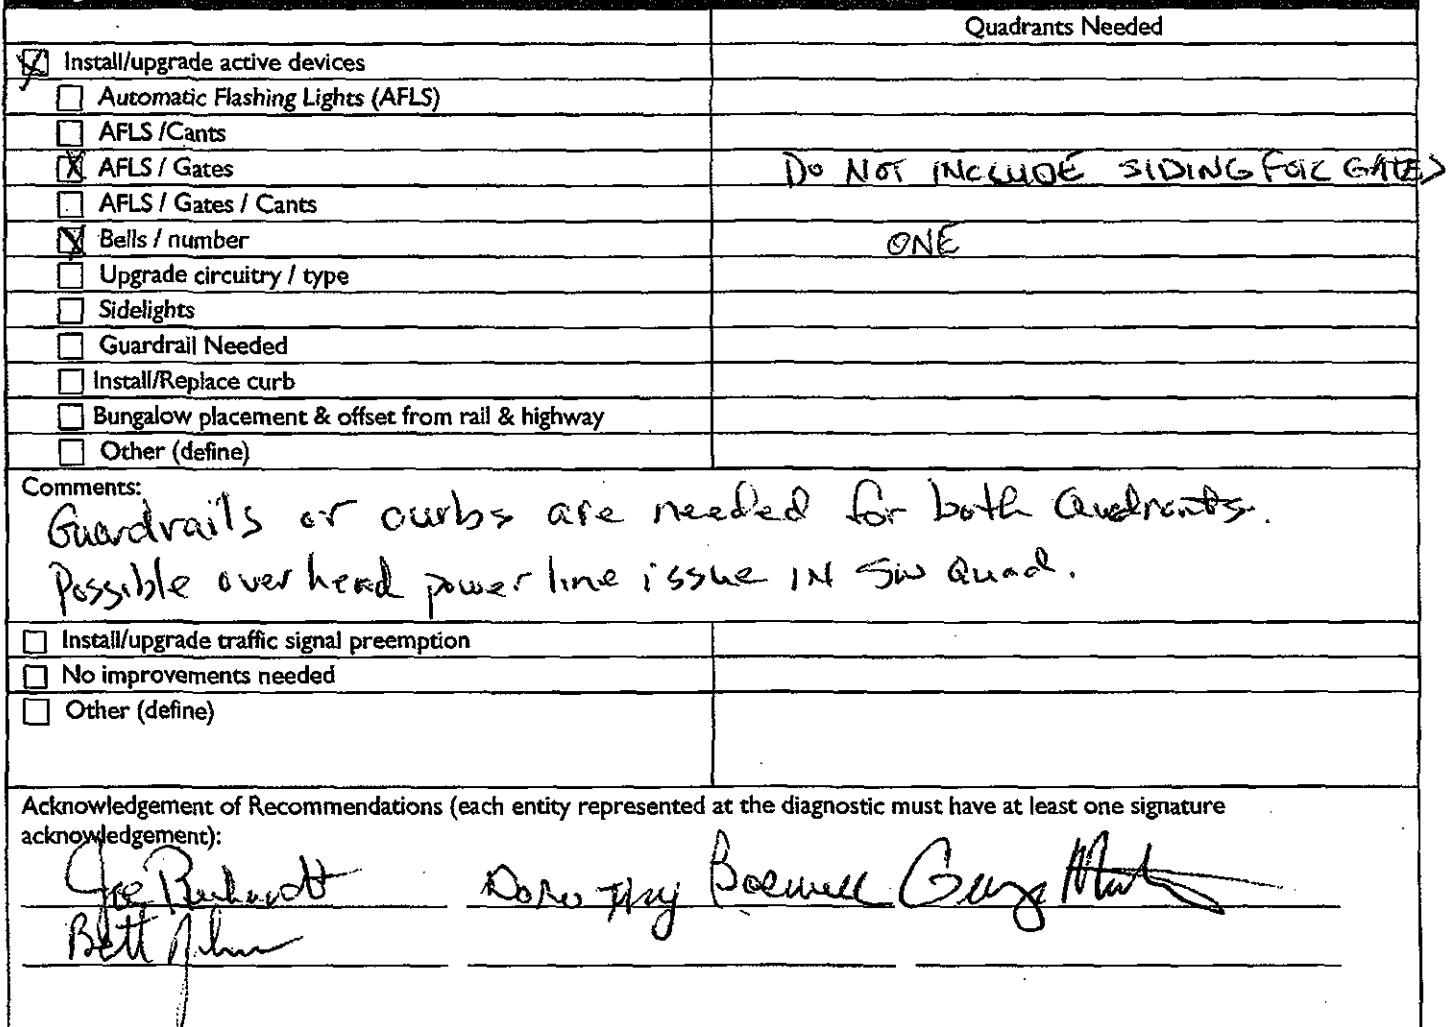 Quadrants Needed
Install/upgrade active devices
Automatic Flashing Lights (AFLS)
AFLS /Cants
AFLS / Gates DO NOT INCLUDE SIDING FOR GATES
AFLS / Gates / Cants
Bells / number ONE
Upgrade circuitry / type
Sidelights
Guardrail Needed
Install/Replace curb
Bungalow placement & offset from rail & highway
Other (define)
Comments:
Guardrails or curbs are needed for both Quadrants.
Possible overhead power line issue IN SW Quad.
Install/upgrade traffic signal preemption
No improvements needed
Other (define)
Acknowledgement of Recommendations (each entity represented at the diagnostic must have at least one signature
acknowledgement):
Joe Dorothy George